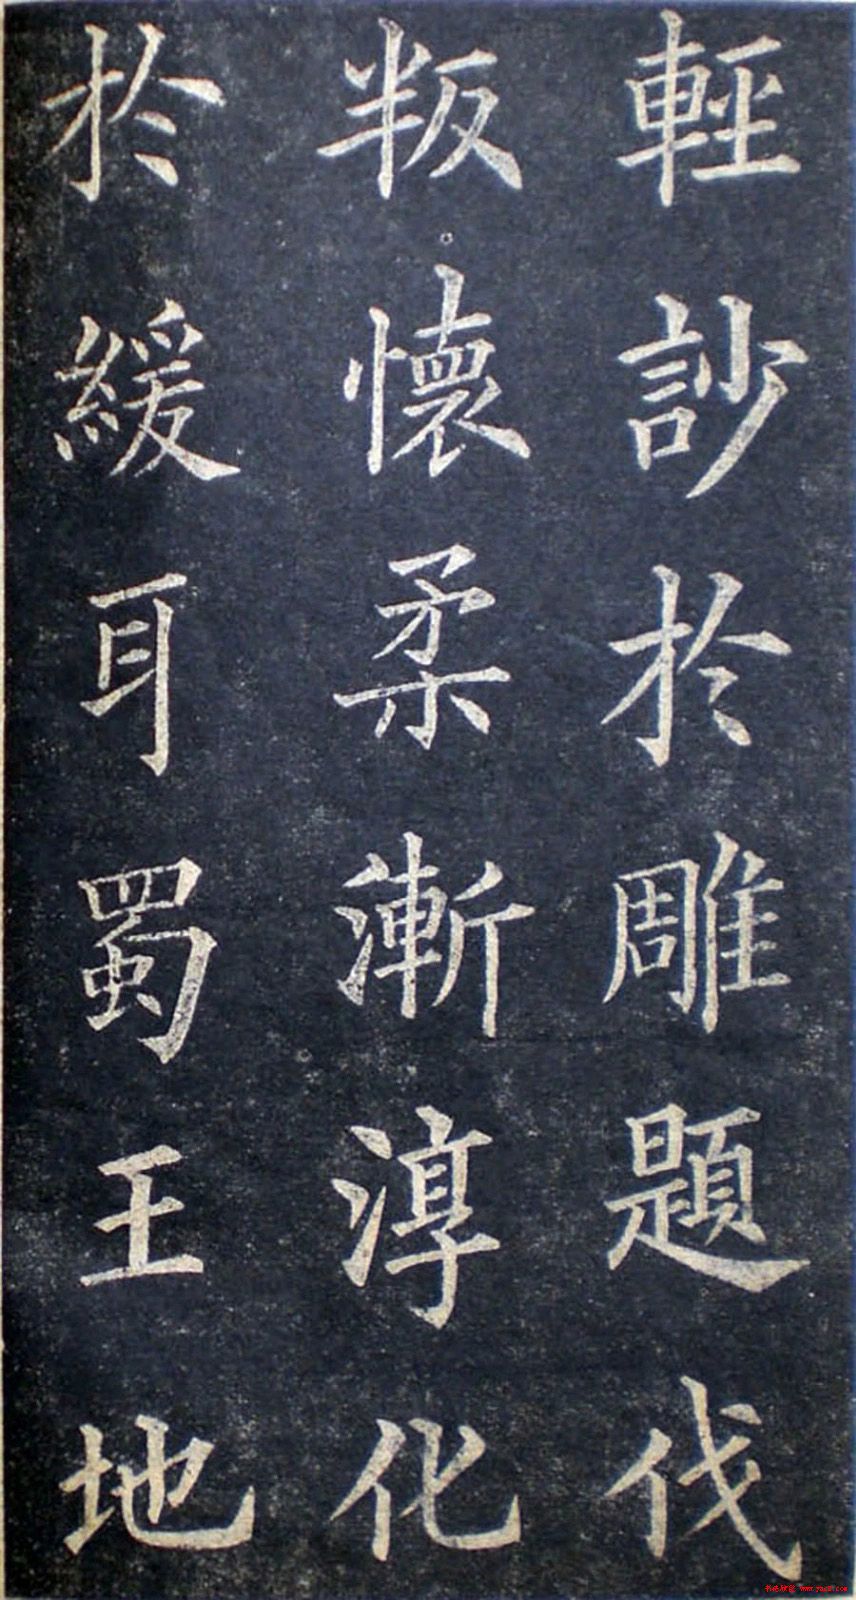 輕訬於雕題伐
叛懷柔漸淳化
於緩耳蜀王地
www.yac8.com